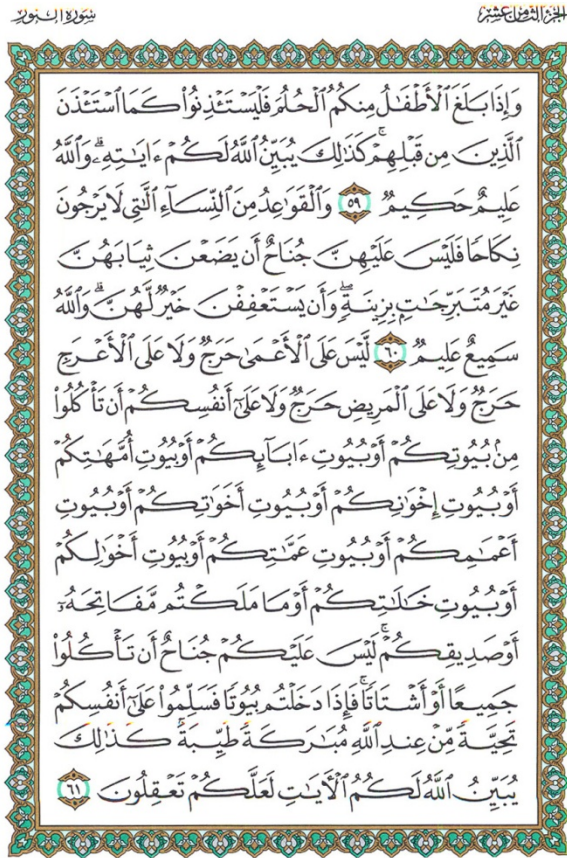 الجزء الثامن عشر
سورة النور
وَإِذَا بَلَغَ ٱلْأَطْفَٰلُ مِنكُمُ ٱلْحُلُمَ فَلْيَسْتَـْٔذِنُوا۟ كَمَا ٱسْتَـْٔذَنَ
ٱلَّذِينَ مِن قَبْلِهِمْ ۚ كَذَٰلِكَ يُبَيِّنُ ٱللَّهُ لَكُمْ ءَايَٰتِهِۦ ۗ وَٱللَّهُ
عَلِيمٌ حَكِيمٌ ٥٩ وَٱلْقَوَٰعِدُ مِنَ ٱلنِّسَآءِ ٱلَّٰتِى لَا يَرْجُونَ
نِكَاحًا فَلَيْسَ عَلَيْهِنَّ جُنَاحٌ أَن يَضَعْنَ ثِيَابَهُنَّ
غَيْرَ مُتَبَرِّجَٰتٍۭ بِزِينَةٍ ۖ وَأَن يَسْتَعْفِفْنَ خَيْرٌ لَّهُنَّ ۗ وَٱللَّهُ
سَمِيعٌ عَلِيمٌ ٦٠ لَّيْسَ عَلَى ٱلْأَعْمَىٰ حَرَجٌ وَلَا عَلَى ٱلْأَعْرَجِ
حَرَجٌ وَلَا عَلَى ٱلْمَرِيضِ حَرَجٌ وَلَا عَلَىٰٓ أَنفُسِكُمْ أَن تَأْكُلُوا۟
مِنۢ بُيُوتِكُمْ أَوْ بُيُوتِ ءَابَآئِكُمْ أَوْ بُيُوتِ أُمَّهَٰتِكُمْ
أَوْ بُيُوتِ إِخْوَٰنِكُمْ أَوْ بُيُوتِ أَخَوَٰتِكُمْ أَوْ بُيُوتِ
أَعْمَٰمِكُمْ أَوْ بُيُوتِ عَمَّٰتِكُمْ أَوْ بُيُوتِ أَخْوَٰلِكُمْ
أَوْ بُيُوتِ خَٰلَٰتِكُمْ أَوْ مَا مَلَكْتُم مَّفَاتِحَهُۥٓ
أَوْ صَدِيقِكُمْ ۚ لَيْسَ عَلَيْكُمْ جُنَاحٌ أَن تَأْكُلُوا۟
جَمِيعًا أَوْ أَشْتَاتًا ۚ فَإِذَا دَخَلْتُم بُيُوتًا فَسَلِّمُوا۟ عَلَىٰٓ أَنفُسِكُمْ
تَحِيَّةً مِّنْ عِندِ ٱللَّهِ مُبَٰرَكَةً طَيِّبَةً ۚ كَذَٰلِكَ
يُبَيِّنُ ٱللَّهُ لَكُمُ ٱلْءَايَٰتِ لَعَلَّكُمْ تَعْقِلُونَ ٦١